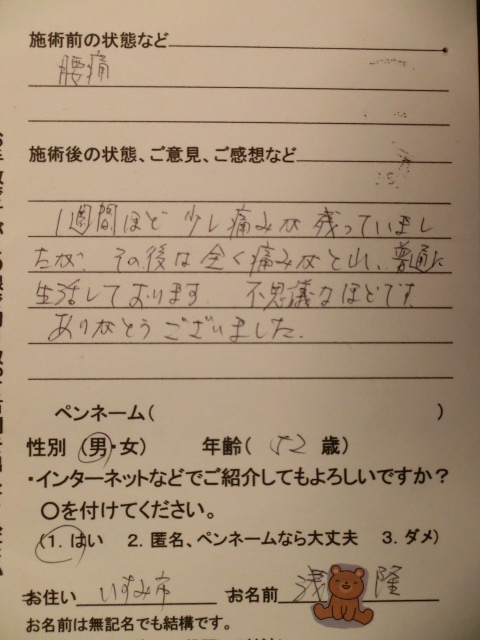 施術前の状態など
腰痛
施術後の状態、ご意見、ご感想など
1週間ほど少し痛みが残っていまし
たが、その後は全く痛みがとれ、普通に
生活しております。不思議なほどです
ありがとうございました。
ペンネーム( )
性別 (男・女) 年齢( 52 歳)
・インターネットなどでご紹介してもよろしいですか?
○を付けてください。
(1. はい 2. 匿名、ペンネームなら大丈夫 3. ダメ)
お住い いすみ市 お名前 浅 隆
お名前は無記名でも結構です。